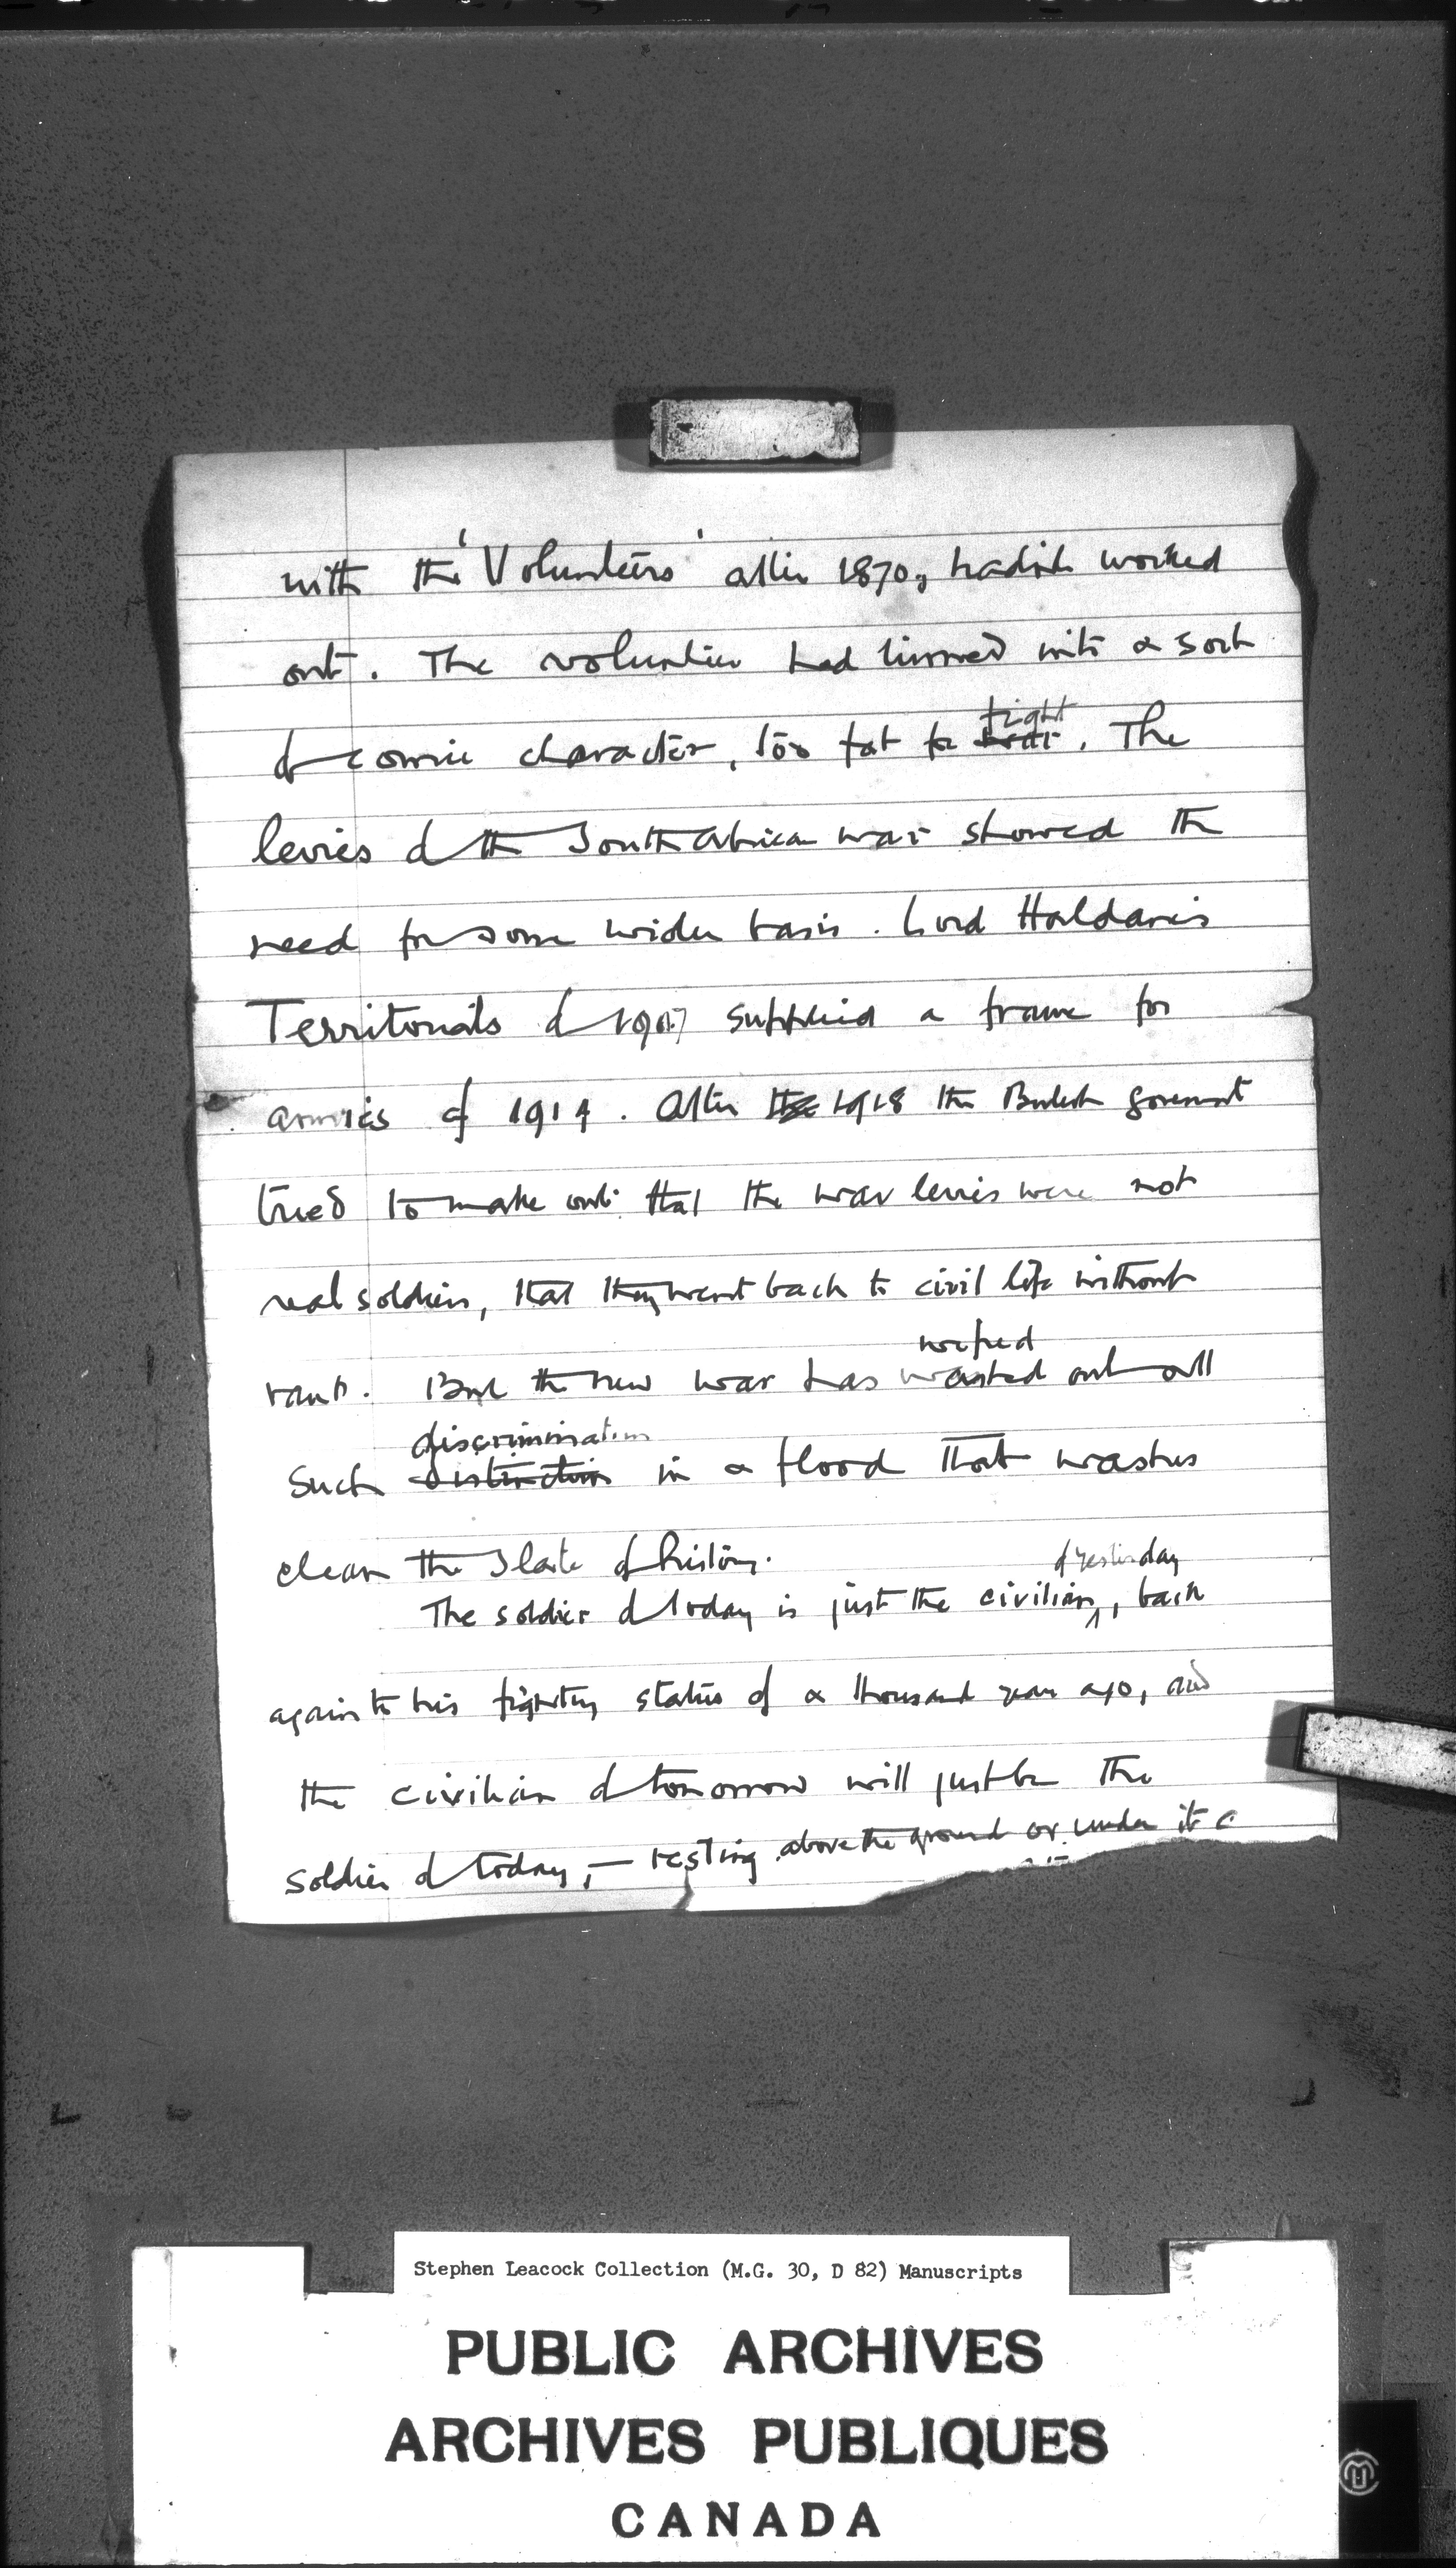 with the 'Volunteers' after 1870, hadn't worked
out. The volunteer had turned into a sort
of comic character, too fat to fight. The
levies of the South African war showed the
need for some wider basis. Lord Haldane's
Territorials of 1907 supplied a frame for
armies of 1914. After the 1918 the British government
tried to make out that the war levies were not
real soldiers, that they went back to civil life without
rank. But the new war has washed out all
wiped
such distinction in a flood that washes
discrimination
clean the slate of history.
The soldier of today is just the civilian of yesterday, back
again to his fighting status of a thousand years ago, and
the civilian of tomorrow will just be the
soldier of today, — resting above the ground or under it
Stephen Leacock Collection (M.G. 30, D 82) Manuscripts
PUBLIC ARCHIVES
ARCHIVES PUBLIQUES
CANADA